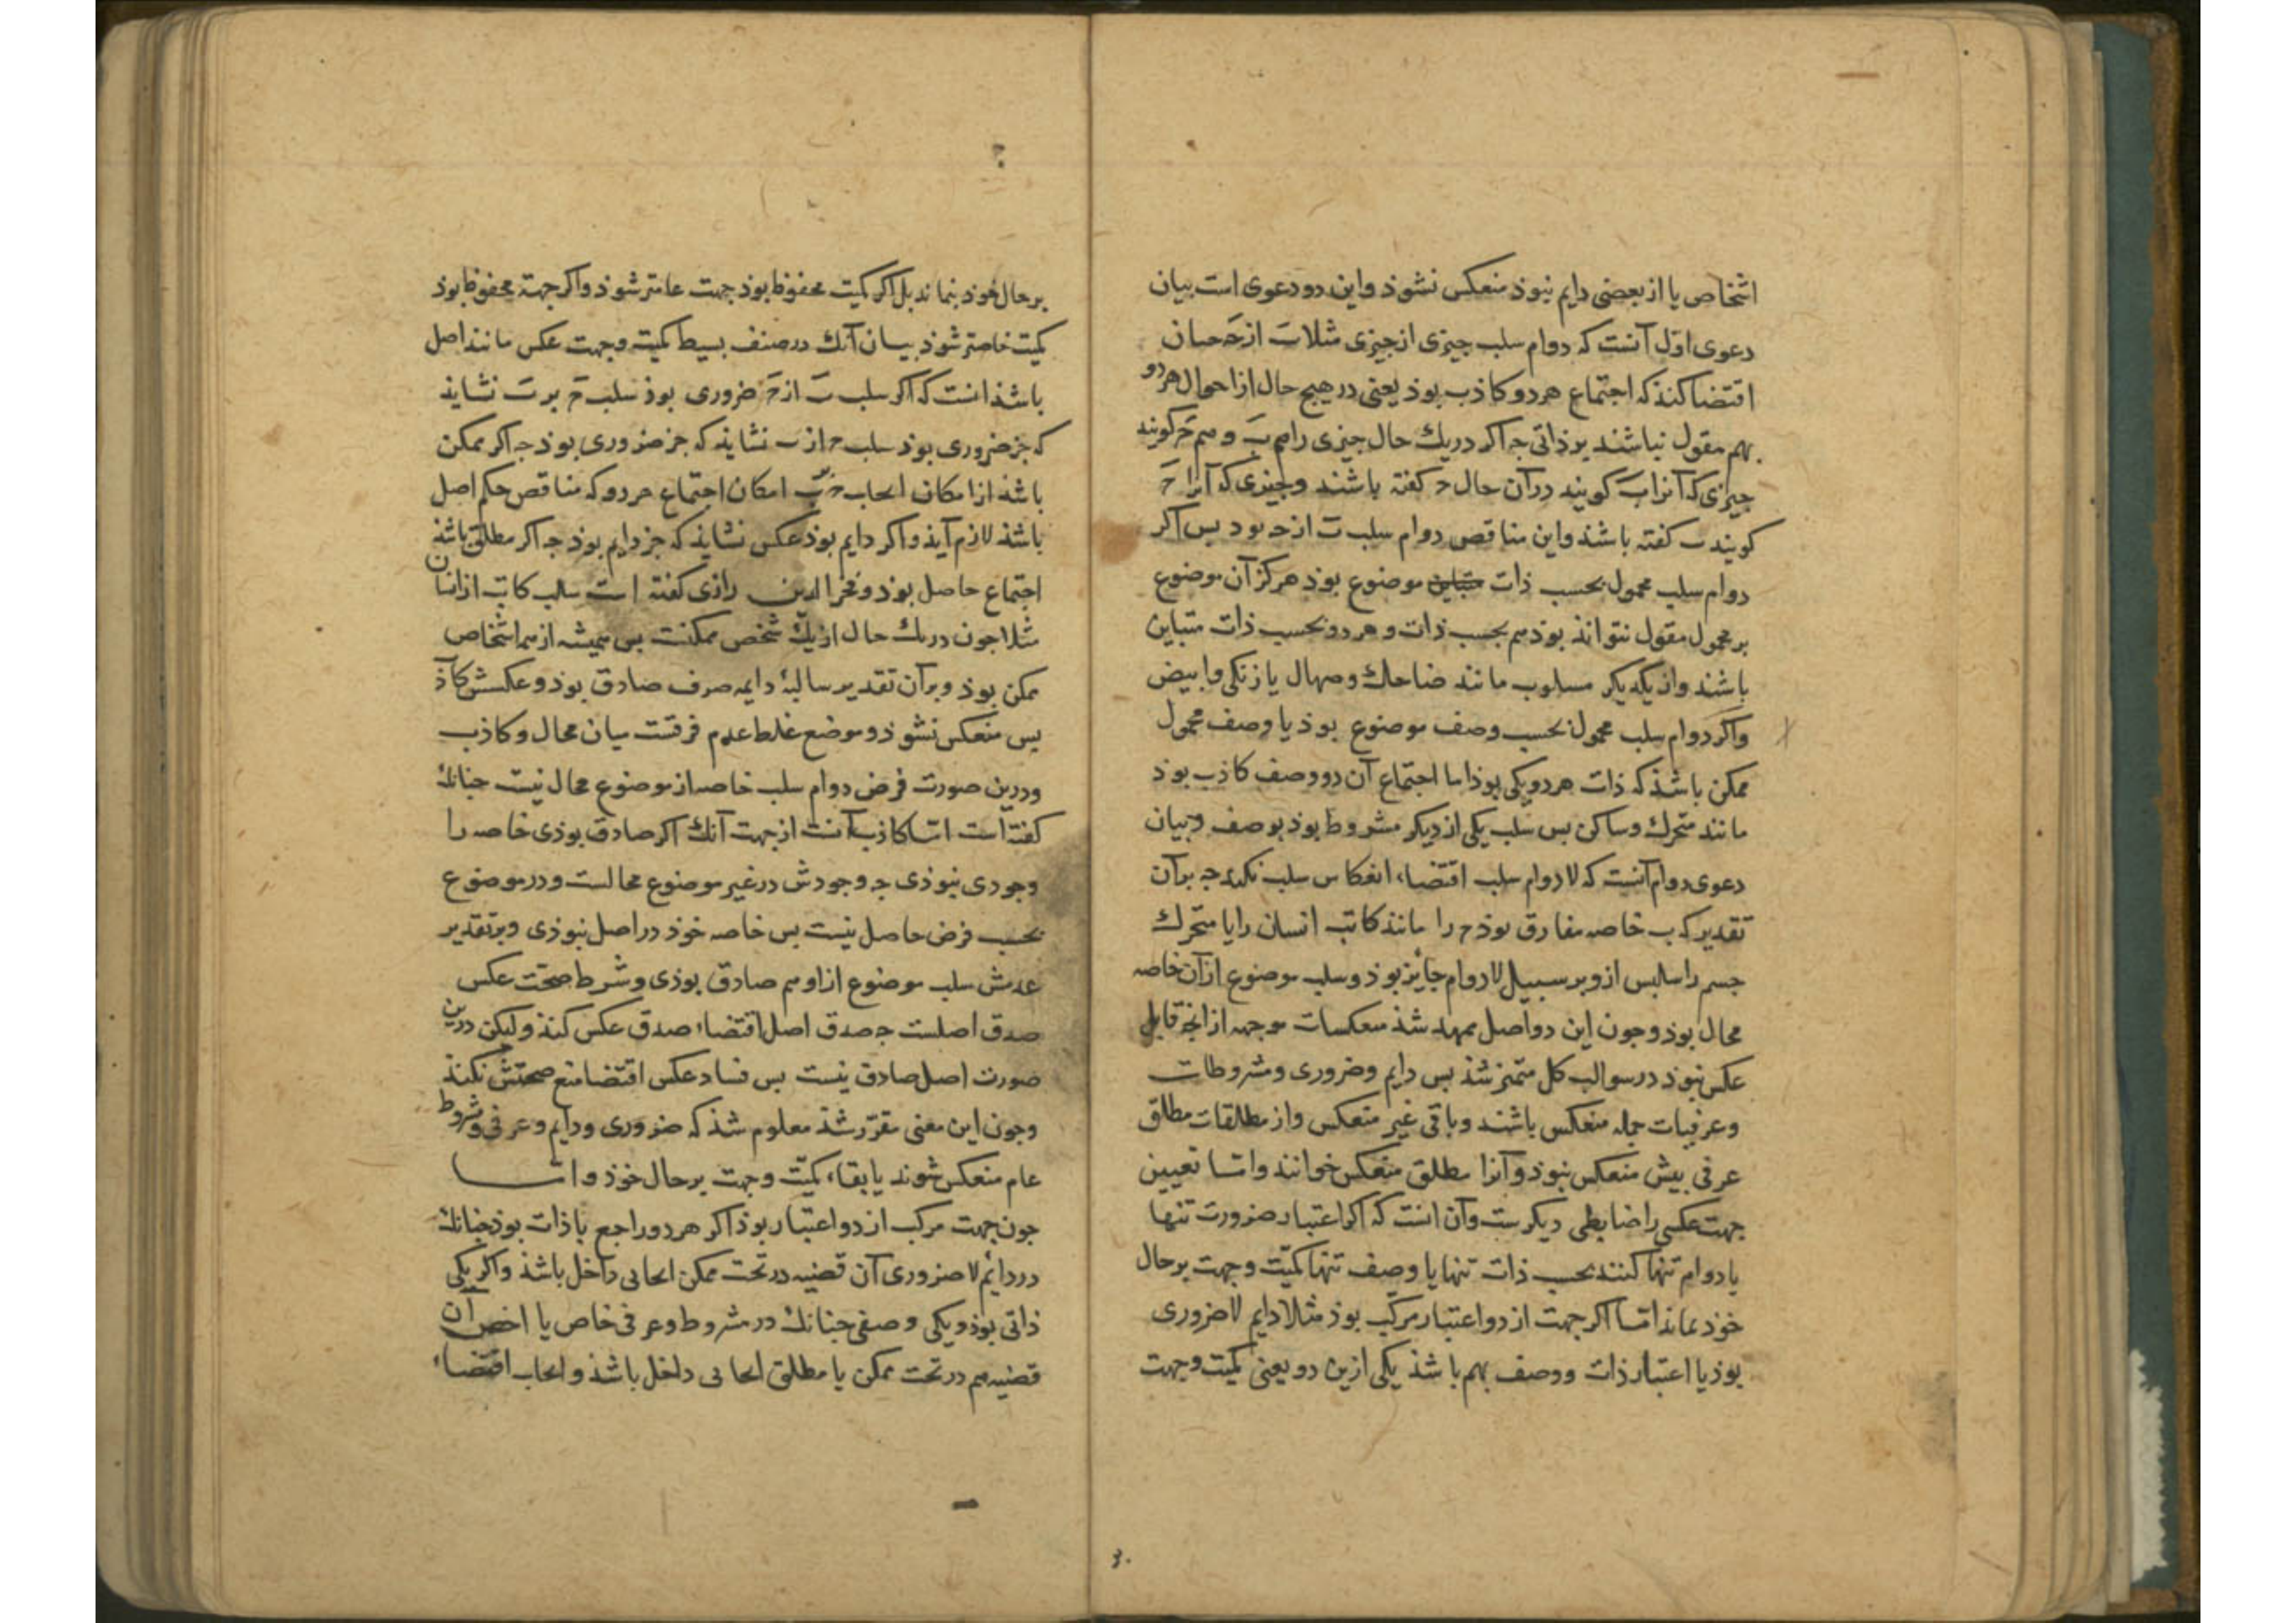 اشخاص یا از بعضی دایم نبوذ منعکس نشوذ واین دو دعوی است بیان
دعوی اوّل آنست که دوام سلب جیزی از جیزی مثلا ب از ح حسان
اقتضا کنذ که اجتماع هر دو کاذب بوذ یعنی در هیج حال از احوال هر دو
بهم مقول نباشند بر ذاتی جه اکر در یك حال جیزی را هم ب و هم ح کویند
جیزی که آنرا ب کویند در آن حال ح کفته باشند وجیزی که آنرا ح
کویند ب کفته باشند واین مناقص دوام سلب ب از ح بود بس اکر
دوام سلب محمول بحسب ذات موضوع بوذ هرکز آن موضوع
بر محمول مقول نتواند بوذ هم بحسب ذات و هر دو بحسب ذات متباین
باشند واز یکدیکر مسلوب مانند ضاحك وصهال یا زنکی وابیض
واکر دوام سلب محمول بحسب وصف موضوع بوذ یا وصف محمول
ممکن باشذ که ذات هر دو یکی بوذ اما اجتماع آن دو وصف کاذب بوذ
مانند متحرك وساکن بس سلب یکی از دیکر مشروط بوذ بوصف وبیان
دعوی دوام آنست که لادوام سلب اقتضاء انعکاس سلب نکند جه بر آن
تقدیر که ب خاصه مفارق بوذ ح را مانند کاتب انسان را یا متحرك
جسم را سالبس ازو بر سبیل لادوام جایز بوذ وسلب موضوع از آن خاصه
محال بوذ وجون این دو اصل ممهد شذ منعکسات موجهه از انج قابل
عکس نبوذ در سوالب کل متمیز شذ بس دایم وضروری ومشروطات
وعرفیات جمله منعکس باشند وباقی غیر منعکس واز مطلقات مطلق
عرفی بیش منعکس نبوذ وآنرا مطلق منعکس خوانند واما تعیین
جهت عکس را ضابطی دیکرست وآن انست که اکر اعتبار ضرورت تنها
یا دوام تنها کنند بحسب ذات تنها یا وصف تنها کمیّت وجهت بر حال
خوذ بماند امّا اکر جهت از دو اعتبار مرکب بوذ مثلا دایم لاضروری
بوذ یا اعتبار ذات ووصف بهم باشذ یکی ازین دو یعنی کمیت وجهت
۳۰
بر حال خوذ بنماند بل اکر کمیت محفوظ بوذ جهت عامتر شوذ واکر جهة محفوظ بوذ
کمیت خاصتر شوذ بیان آنك در صنف بسیط کمیت وجهت عکس مانند اصل
باشذ انست که اکر سلب ب از ح ضروری بوذ سلب ح بر ب نشایذ
که جز ضروری بوذ سلب ح از ب نشایذ که جز ضروری بوذ جه اکر ممکن
باشذ از امکان ایجاب ح ب امکان اجتماع هر دو که مناقص حکم اصل
باشذ لازم آیذ واکر دایم بوذ عکس نشایذ که جز دایم بوذ جه اکر مطلق باشذ
اجتماع حاصل بوذ وفخر الدین رازی کفته است سلب کاتب از انسان
مثلا جون در یك حال از یك شخص ممکنست بس همیشه از همه اشخاص
ممکن بوذ وبر آن تقدیر سالبۀ دایمه صرف صادق بوذ وعکسش کاذب
بس منعکس نشوذ وموضع غلط عدم فرقست میان محال وکاذب
ودرین صورت فرض دوام سلب خاصه از موضوع محال نیست جنانك
کفته است امّا کاذب آنست از جهت آنك اکر صادق بوذی خاصه را
وجودی نبوذی جه وجودش در غیر موضوع محالست ودر موضوع
بحسب فرض حاصل نیست بس خاصه خوذ در اصل نبوذی وبر تقدیر
عدمش سلب موضوع ازاو هم صادق بوذی وشرط صحّت عکس
صدق اصلست جه صدق اصل اقتضاء صدق عکس کنذ ولیکن درین
صورت اصل صادق نیست بس فساد عکس اقتضا منع صحتش نکند
وجون این معنی مقرّر شذ معلوم شذ که ضروری ودایم وعرفی ومشروط
عام منعکس شوند با بقاء کمیّت وجهت بر حال خوذ وامّا
جون جهت مرکب از دو اعتبار بوذ اکر هر دو راجع با ذات بوذ جنانك
در دایم لاضروری آن قضیه در تحت ممکن ایجابی داخل باشذ واکر یکی
ذاتی بوذ ویکی وصفی جنانك در مشروط وعرفی خاص یا اخص آن
قضیه هم در تحت ممکن یا مطلق ایجابی داخل باشذ وایجاب اقتضاء